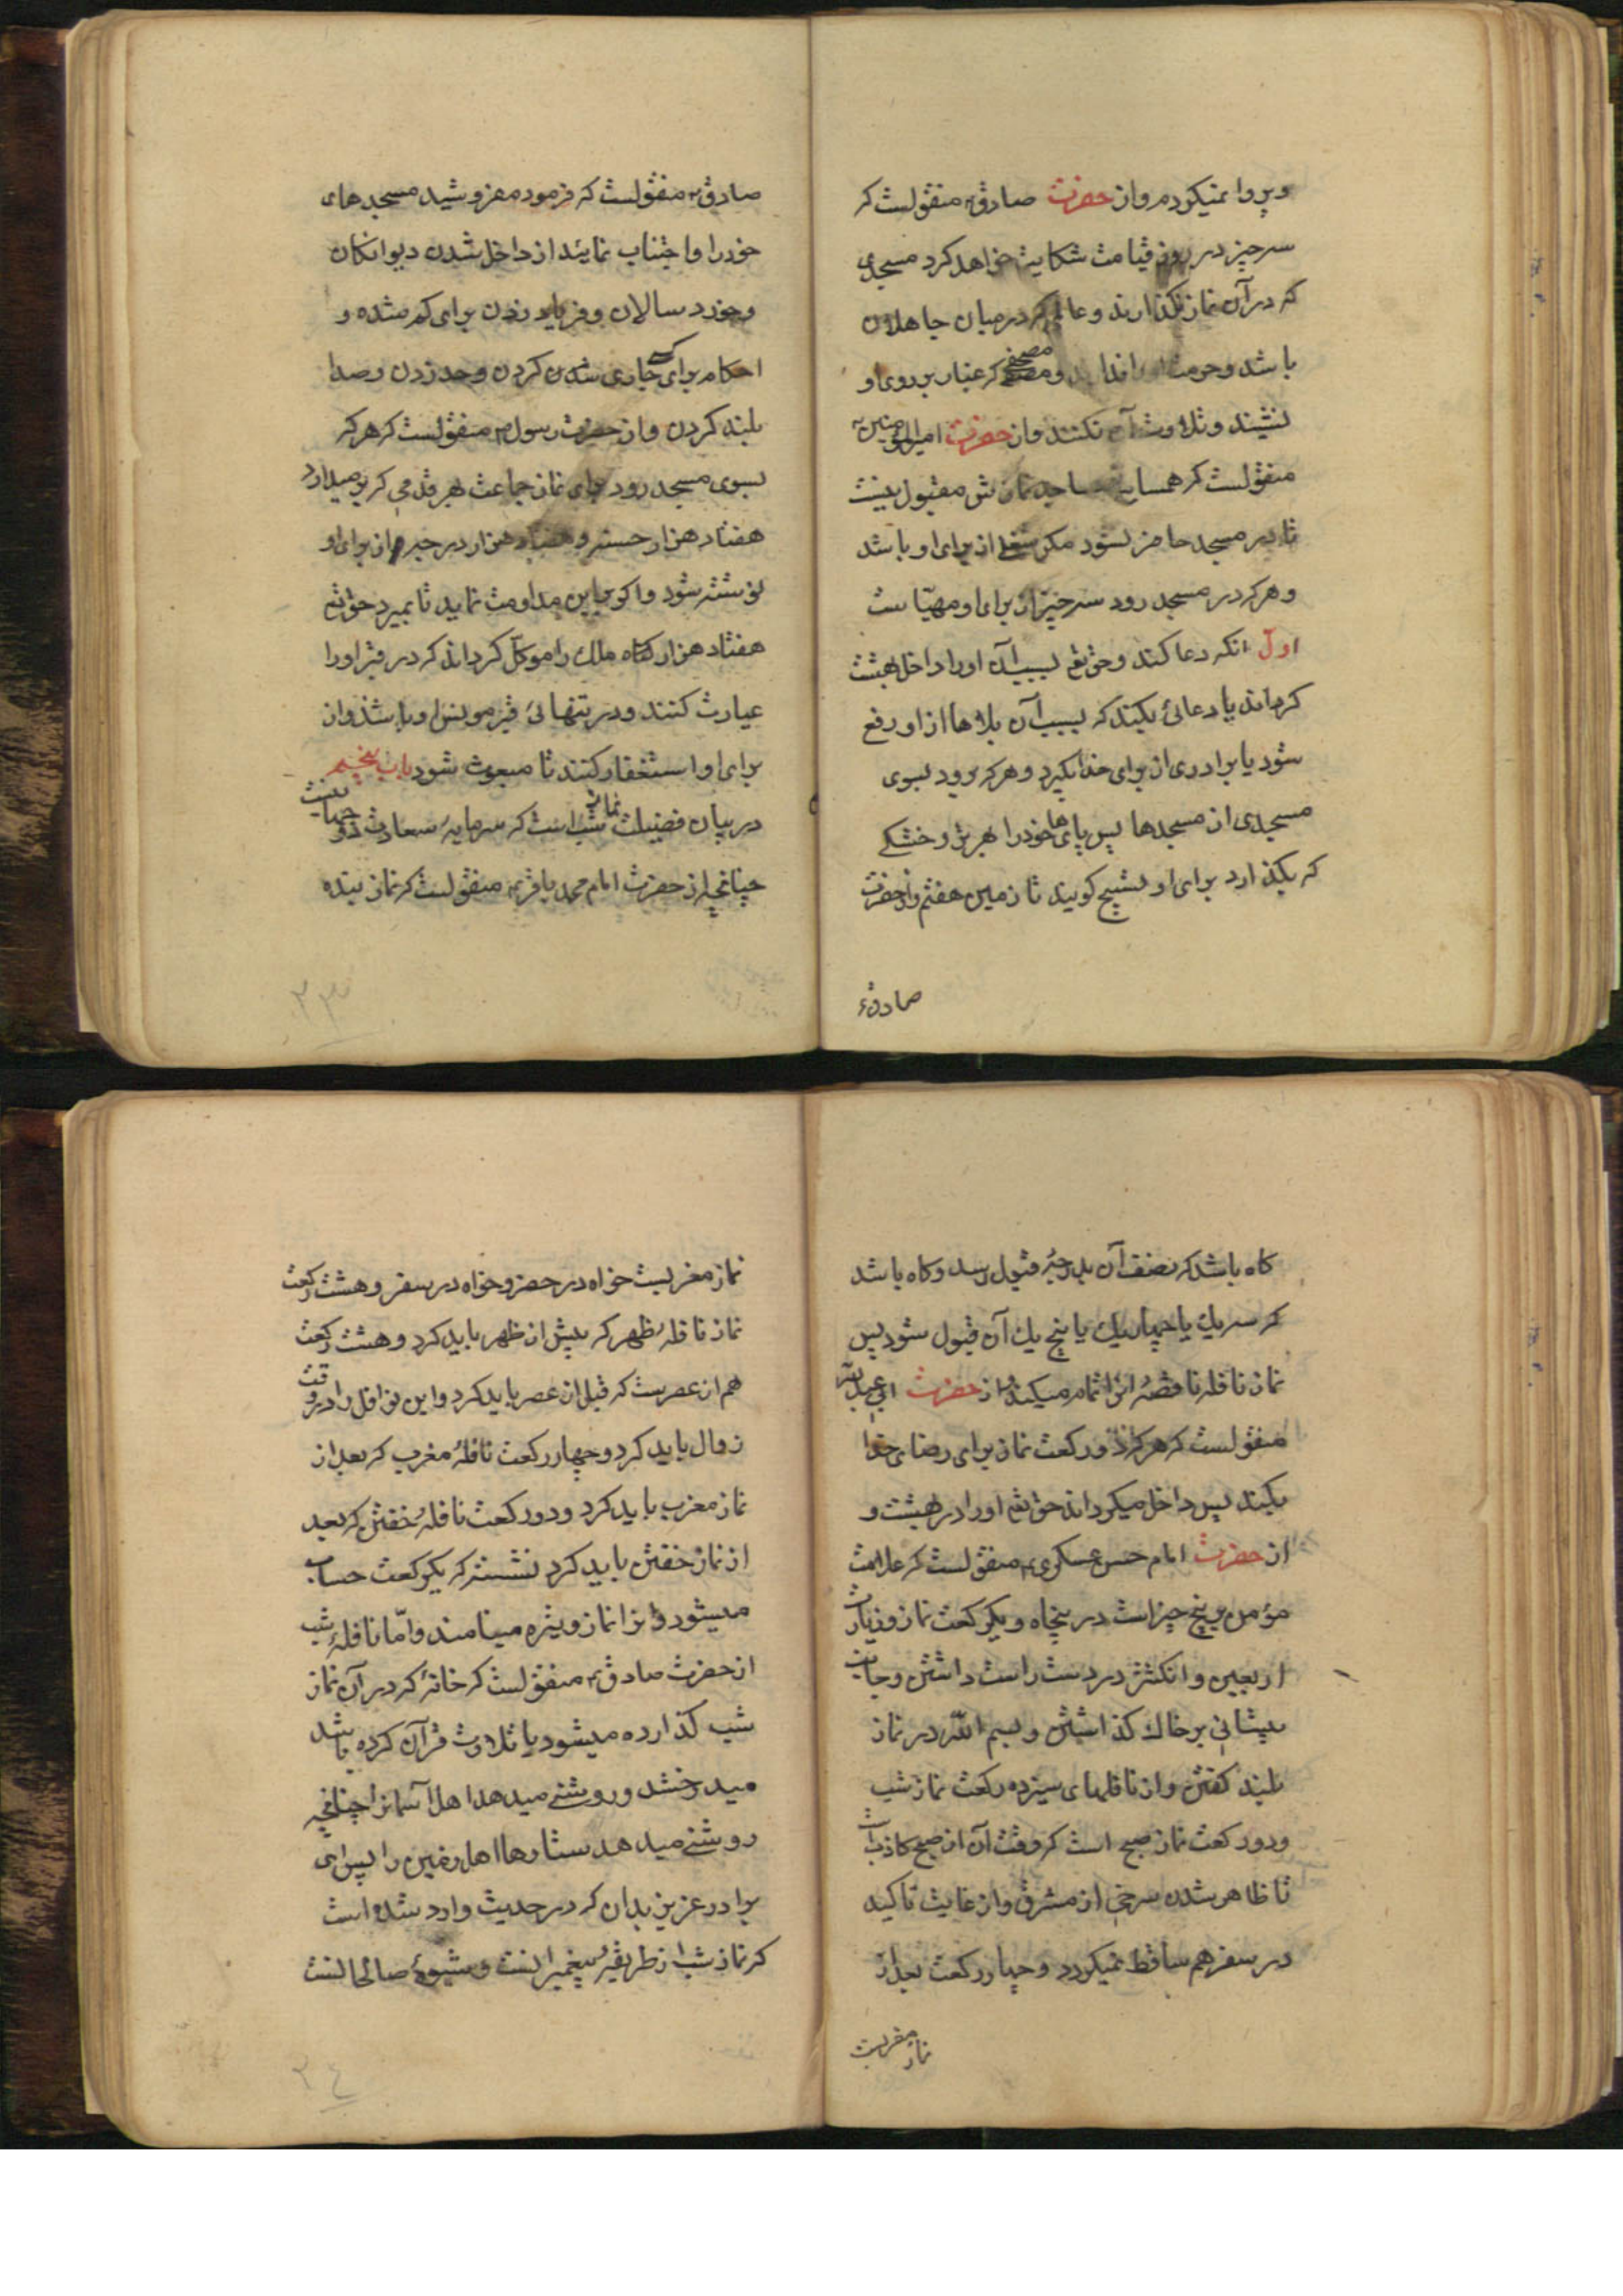 و پروا نمیکردم و از حضرت صادق؏ منقولست که
سه چیز در روز قیامت شکایت خواهد کرد مسجدی
که در آن نماز نگذارند و عالمی که در میان جاهلان
باشد و حرمت او را ندانند و مصحفی که غبار بر روی او
نشیند و تلاوت آن نکنند و از حضرت امیرالمؤمنین؏
منقولست که همسایه مساجد نمازش مقبول نیست
تا در مسجد حاضر نشود مگر شغلی از برای او باشد
و هر که در مسجد رود سه چیز از برای او مهیّاست
اول آنکه دعا کند و حق تع بسبب آن او را داخل بهشت
گرداند یا دعائی بکند که بسبب آن بلاها از او رفع
شود یا برادری از برای خدا بگیرد و هر که برود بسوی
مسجدی از مسجدها پس پای‌های خود را بهر تر و خشکی
که بگذارد برای او تسبیح گویند تا زمین هفتم و از حضرت
صادق؏
صادق؏ منقولست که فرمود مفروشید مسجدهای
خود را و اجتناب نمایند از داخل شدن دیوانگان
و خورد سالان و فریاد زدن برای گم شده و
احکام برای کسی جاری شدن کردن و حد زدن و صدا
بلند کردن و از حضرت رسول ص منقولست که هر که
بسوی مسجد رود برای نماز جماعت بهر قدمی که بر میدارد
هفتاد هزار حسنه و هفتاد هزار درجه از برای او
نوشته شود و اگر بر این مداومت نماید تا بمیرد حق تع
هفتاد هزار ملک را موکّل گرداند که در قبر او را
عیادت کنند و در تنهائی قبر مونس او باشند و از
برای او استغفار کنند تا مبعوث شود باب پنجم
در بیان فضیلت نماز شب است که سرمایهٔ سعادت دو جهانیست
چنانچه از حضرت امام محمد باقر؏ منقولست که نماز بنده
۲۳
گاه باشد که نصف آن بدرجهٔ قبول رسد و گاه باشد
که سه یک یا چهار یک یا پنج یک آن قبول شود پس
نماز نافله ناقصهٔ آنرا تمام میکند و از حضرت ابی عبدالله
منقولست که هر که دو رکعت نماز برای رضای خدا
بکند پس داخل میگرداند حق تع او را در بهشت و
از حضرت امام حسن عسکری؏ منقولست که علامت
مؤمن بر پنج چیز است در پنجاه و یکرکعت نماز و زیارت
اربعین و انگشتر در دست راست داشتن و جانب
پیشانی بر خاک گذاشتن و بسم الله در نماز
بلند گفتن و از نافلهای سیزده رکعت نماز شب
و دو رکعت نماز صبح است که وقت آن از صبح کاذب است
تا ظاهر شدن سرخی از مشرق و از غایت تأکید
در سفر هم ساقط نمیگردد و چهار رکعت بعد از
نماز مغربست
نماز مغربست خواه در حضر و خواه در سفر و هشت رکعت
نماز نافلهٔ ظهر که پیش از ظهر باید کرد و هشت رکعت
هم از عصرست که قبل از عصر باید کرد و این نوافل را در وقت
زوال باید کرد و چهار رکعت نافلهٔ مغرب که بعد از
نماز مغرب باید کرد و دو رکعت نافلهٔ خفتن که بعد
از نماز خفتن باید کرد نشسته که یکرکعت حساب
میشود و آنرا نماز ویتره مینامند و امّا نافلهٔ شب
از حضرت صادق؏ منقولست که خانهٔ که در آن نماز
شب گذارده میشود یا تلاوت قرآن کرده باشد
میدرخشد و روشنی میدهد اهل آسمانرا چنانچه
روشنی میدهد ستارها اهل زمین را پس ای
برادر عزیز بدان که در حدیث وارد شده است
که نماز شب از طریقهٔ پیغمبرانست و شیوهٔ صالحانست
۲٤